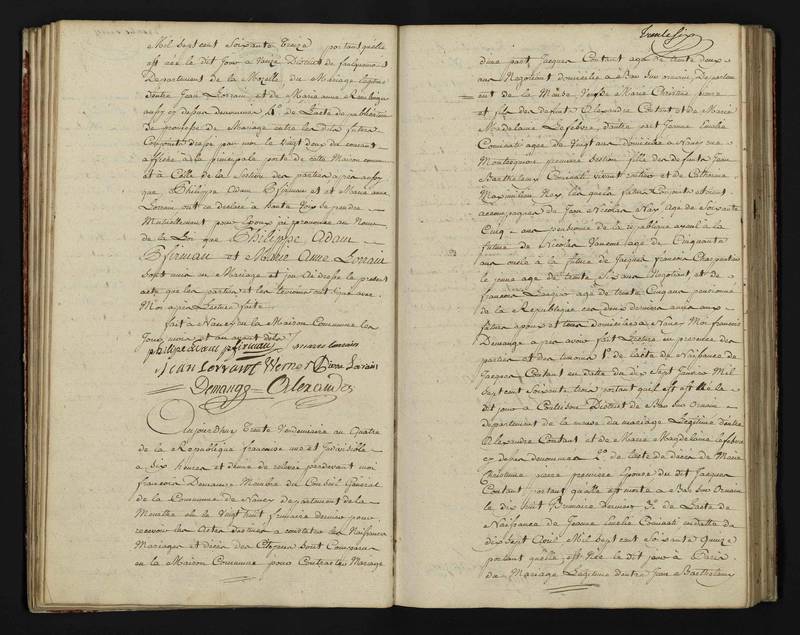 Mil sept cent soixante treize portant qu'elle
est née le dit jour à District de faulquemont
Departement de la Mozelle du Mariage légitime
d'entre Jean Lorrain et de Marie anne
aussy cy dessus denommée 4° de l'acte de publication
de promesse de Mariage entre les dits futurs
Conjoints dressé par moi le vingt deux du courant
affiché à la principale porte de cette Maison commune
et à Celle de la Section des parties après aussy
que Philippe Adam Pfirmau et Marie anne
Lorrain ont eu déclaré à haute voix se prendre
Mutuellement pour Epoux j'ai prononcé au Nom
de la Loi que Philippe Adam
Pfirmau et Marie Anne Lorrain
sont unis en Mariage et j'ai dressé le present
acte que les parties et les temoins ont signé avec
Moi après Lecture faite
fait à Nancy en la Maison Commune les
Jour, mois et an avant dits
philipe adam pfirmau marie lorrain
Jean Lorrain Werner Pierre Lorrain
Demange
Aujourd'huy trente Vendemiaire an Quatre
de la Republique francaise une et Indivisible
à six heures et demie de relevée pardevant moi
francois Demange Membre du Conseil Général
de la Commune de Nancy departement de la
Meurthe elu le vingt huit frimaire dernier pour
recevoir les Actes destinés à constater les Naissances
Mariages et décès des Citoyens sont Comparus
en la Maison Commune pour Contracter Mariage
trente six
d'une part Jacques Contant agé de trente deux
ans Negotiant domicilié à Bar sur ornain Departem
ent de la Meuse Veuf de Marie Christine
et fils des defunts Alexandre Contant et de Marie
Madelaine Lefebvre, d'autre part Jeanne Emelie
Cominati agée de Vingt ans domiciliée à Nancy rue
Montesquieu premiere Section fille des defunts Jean
Barthelemy Cominati vivant et de Catherine
Maximilien Nay les quels futurs Conjoints etoient
accompagnés de Jean Nicolas Nay agé de Soixante
Cinq ans pensionné de la republique ayeul à la
future de Nicolas agé de Cinquante
ans oncle à la future de Jacques francois Charpentier
le jeune agé de trente Six ans Negotiant, et de
francois agé de trente Cinq ans pensionné
de la Republique ces deux derniers amis aux
futurs epoux et tous domiciliés à Nancy Moi francois
Demange après avoir fait Lecture en presence des
parties et des temoins 1° de l'acte de Naissance de
Jacques Contant en datte du dix Sept Janvier Mil
Sept cent soixante trois portant qu'il est né le
dit jour à District de Bar sur Ornain
departement de la meuse du mariage Légitime d'entre
Alexandre Contant et de Marie Magdelaine lefebvre
cy dessus denommés 2° de l'acte de décès de Marie
Christinne premiere Epouse du dit Jacques
Contant portant qu'elle est morte à Bar Sur Ornain
le dix huit Brumaire dernier 3° de l'acte de
Naissance de Jeanne Emelie Cominati en datte du
dix Sept Aout Mil Sept cent soixante quinze
portant qu'elle est Née le dit jour à Paris
du Mariage Légitime d'entre Jean Barthelemy